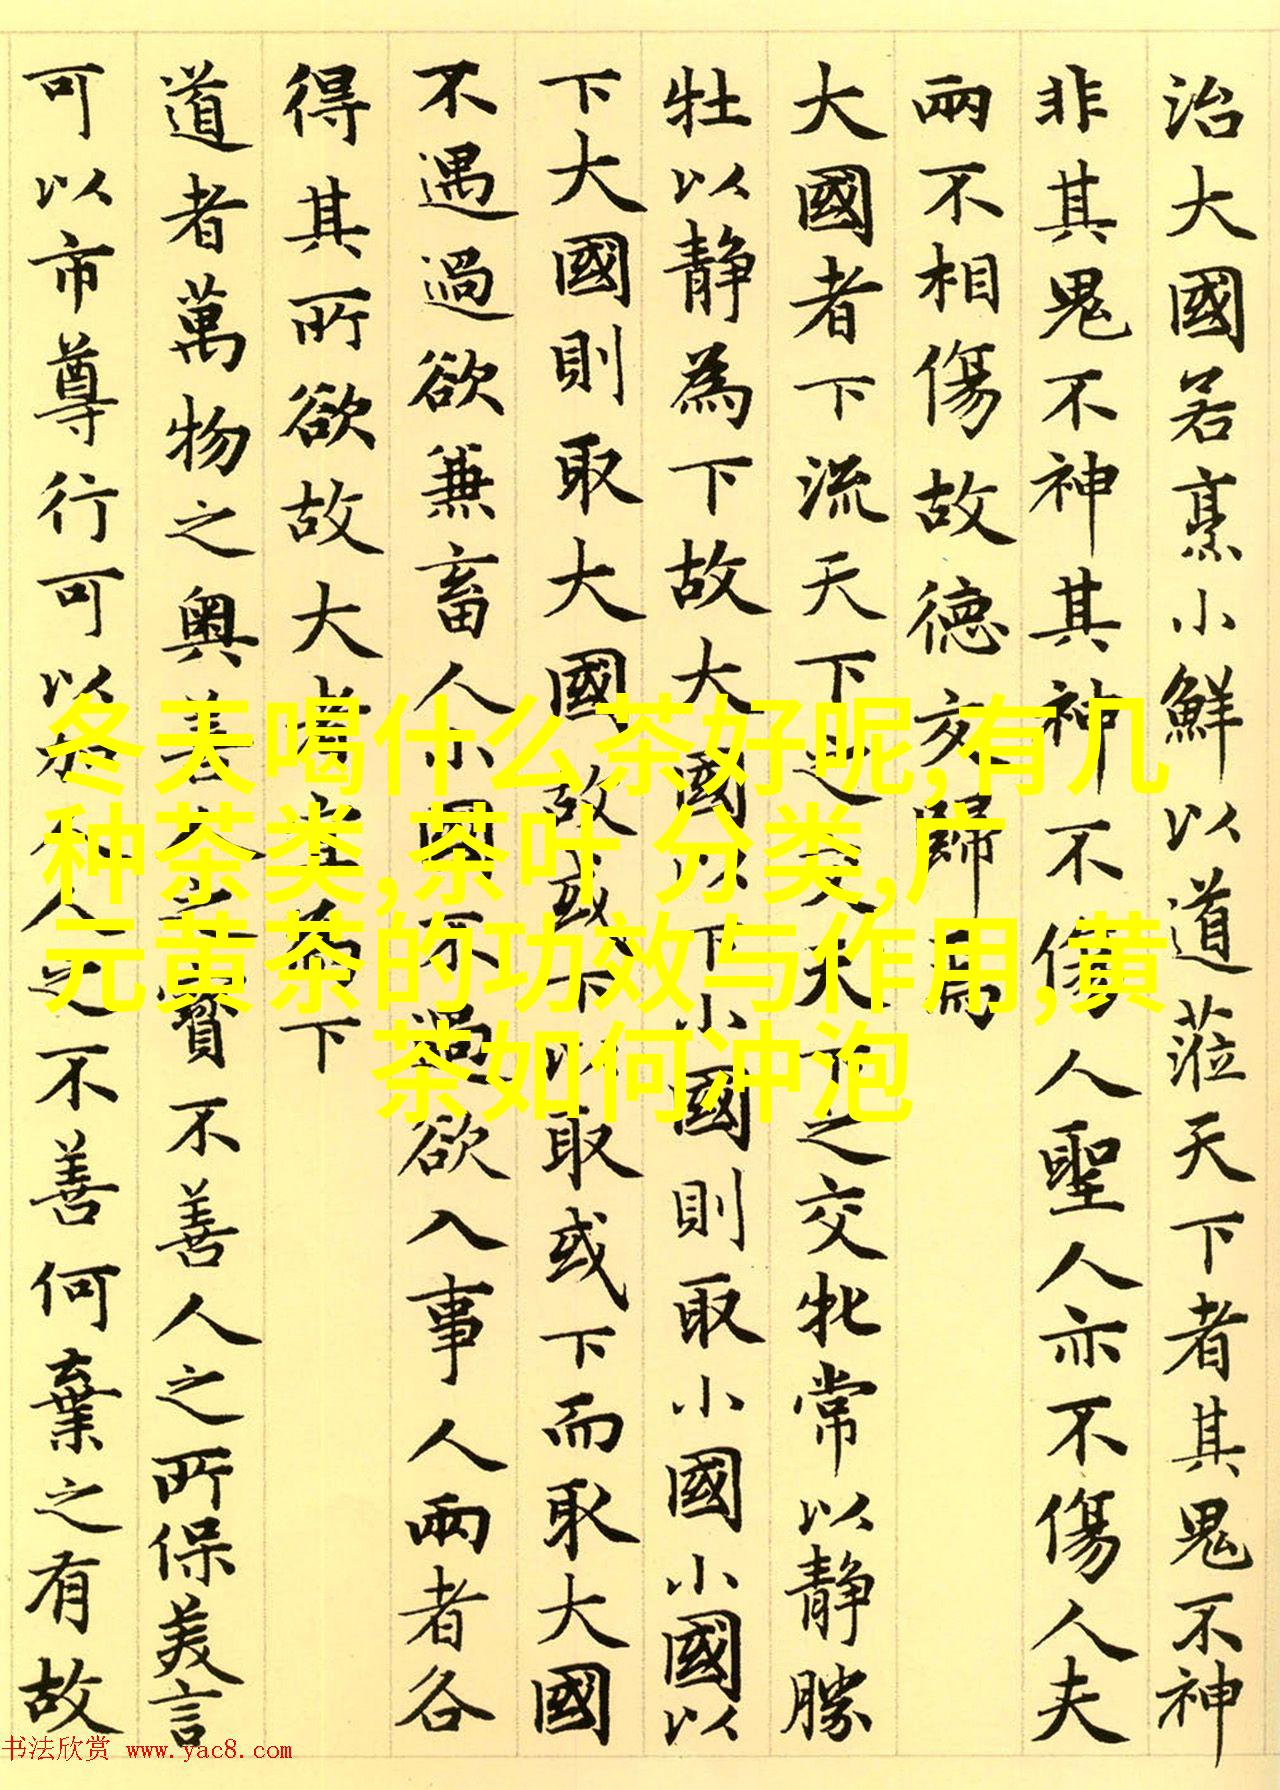 治大國若烹小鮮以道蒞天下者其鬼不神
非其鬼不神其神不傷人聖人亦不傷人夫
兩不相傷故德交歸焉
大國者下流天下之交天下之交牝常以静勝
牡以静為下故大國以下小國則取小國小國以
下大國則取大國故或下以取或下而取大國
不遇過欲兼畜人小國不過欲入事人兩者各
得其所欲故大者宜為下
道者萬物之奥善人之寶不善人之所保美言
可以市尊行可以加人人之不善何棄之有故
冬天喝什么茶好呢,有几
种茶类,茶叶 分类,广
元黄茶的功效与作用,黄
茶如何冲泡
书法欣赏 www.yac8.com